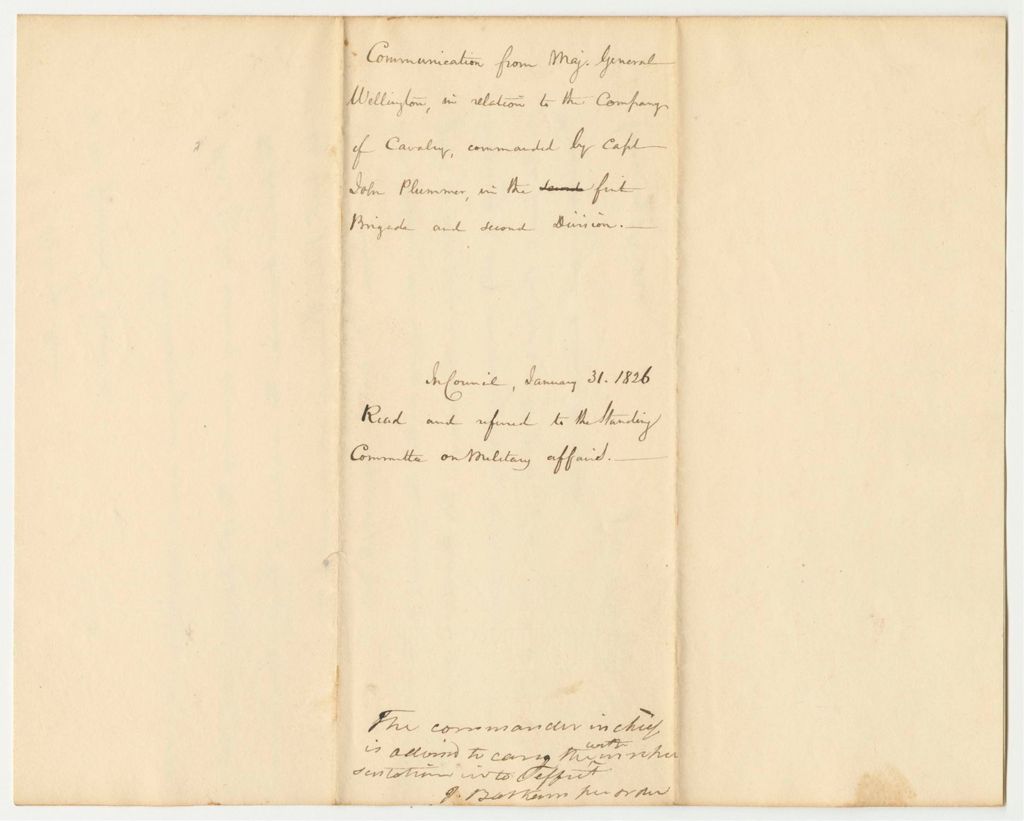 Communication from Maj. General
Wellington, in relation to the Company
of Cavalry, commanded by Capt
John Plummer, in the second first
Brigade and second Division.
In Council, January 31. 1826
Read and referred to the Standing
Committee on Military affairs.
The commander in chief
is advised to carry the within
sentation into effect
per order